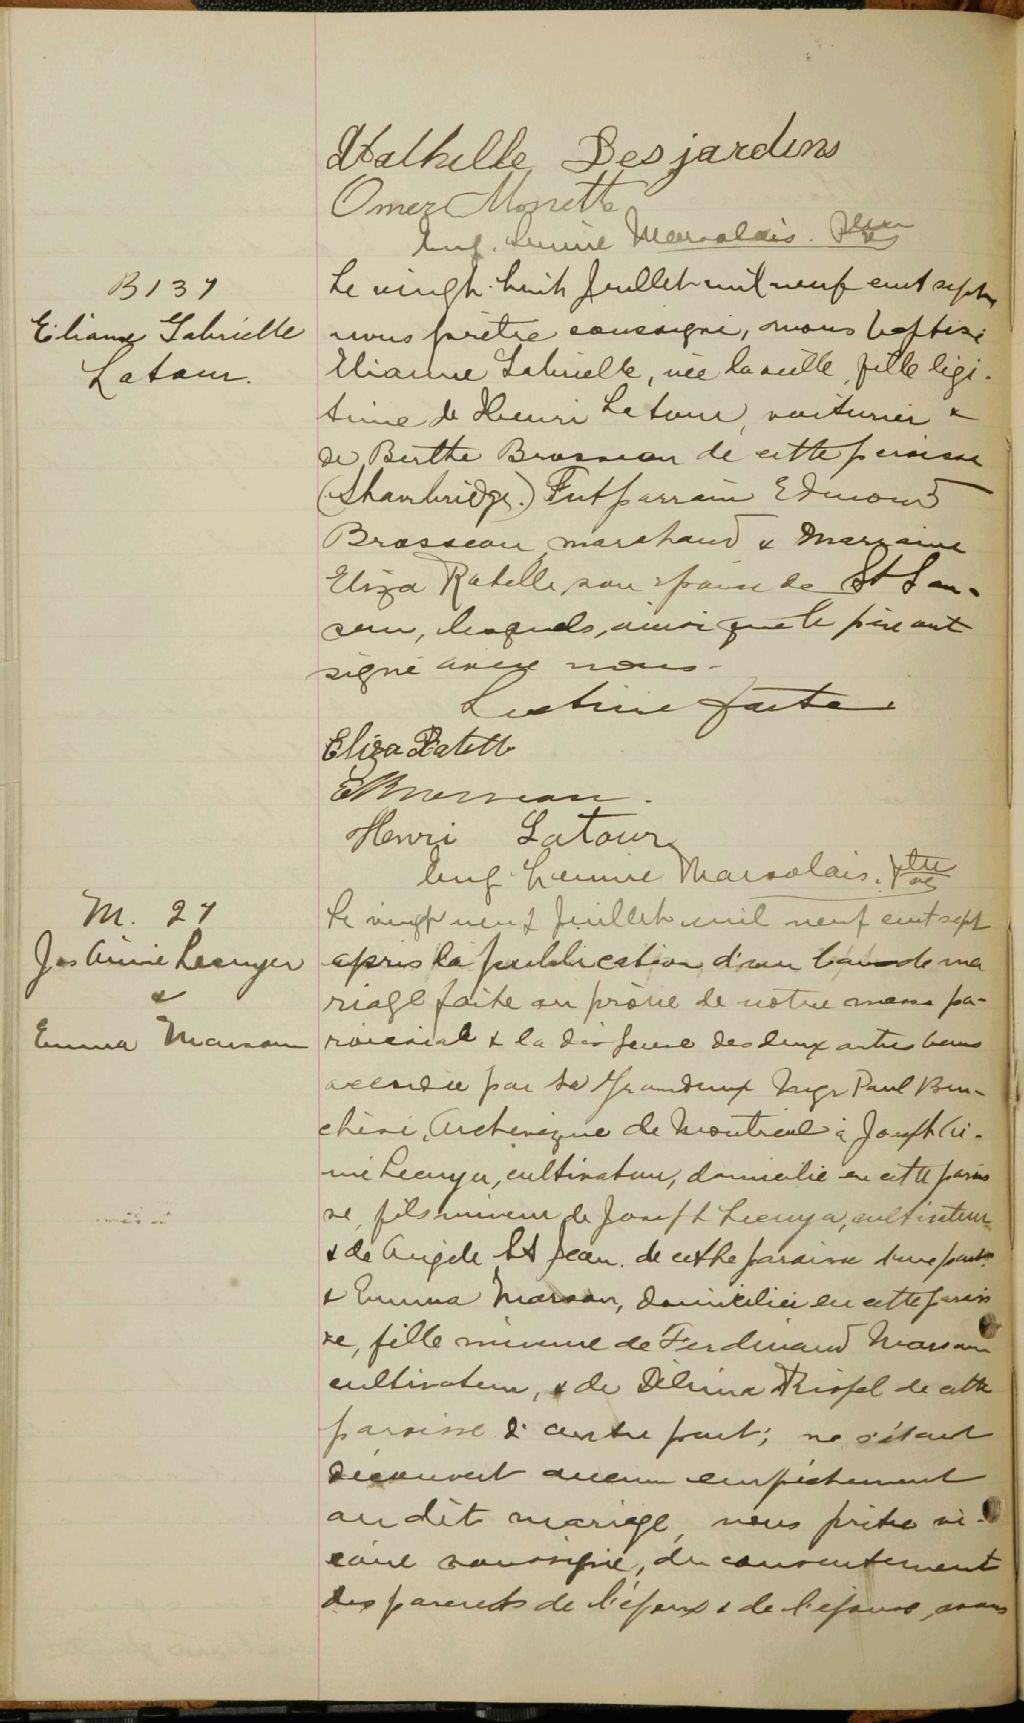 Mathilde Desjardins
Omer Monette
Eug. Lucine Marsolais. Ptre
B 137
Eliane Gabrielle
Latour.
Le vingt huit Juillet mil neuf cent sept
nous prêtre soussigné, avons baptisé
Elianne Gabrielle, née la veille, fille légi-
time de Henri Latour, voiturier &
de Berthe Brosseau de cette paroisse
(Stanbridge.) Fut parrain Edmond
Brosseau, marchand & Marraine
Eliza Ratelle son épouse de St
lesquels, ainsi que le père ont
signé avec nous.
Lecture faite.
Eliza Ratelle
E Brosseau.
Henri Latour
Eug. Marsolais. Ptre
M. 27
Jos Aimé Lecuyer
&
Emma Marson
Le vingt neuf Juillet mil neuf cent sept
après la publication d'un ban de ma
riage faite au prône de notre messe pa-
roissiale & la dispense des deux autres bans
accordée par Sa Grandeur Mgr Paul Bru-
chési, Archevêque de Montréal à Joseph Ai-
mé Lecuyer, cultivateur, domicilié en cette parois
se, fils mineur de Joseph Lecuyer, cultivateur
& de Angèle St Jean de cette paroisse d'une part
& Emma Marson, domiciliée en cette parois
se, fille mineure de Ferdinand Marson
cultivateur, & de Délima de cette
paroisse d'autre part; ne s'étant
découvert aucun empêchement
au dit mariage, nous prêtre vi-
caire soussigné, du consentement
des parents de l'époux & de l'épouse, avons